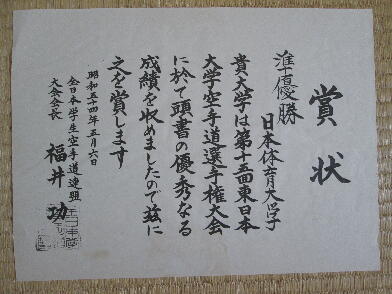 賞状
準優勝
日本体育大学
貴大学は第十五回東日本
大学空手道選手権大会
に於て頭書の優秀なる
成績を収めましたので茲に
之を賞します
昭和五十四年五月六日
全日本学生空手道連盟
大会会長 福井功